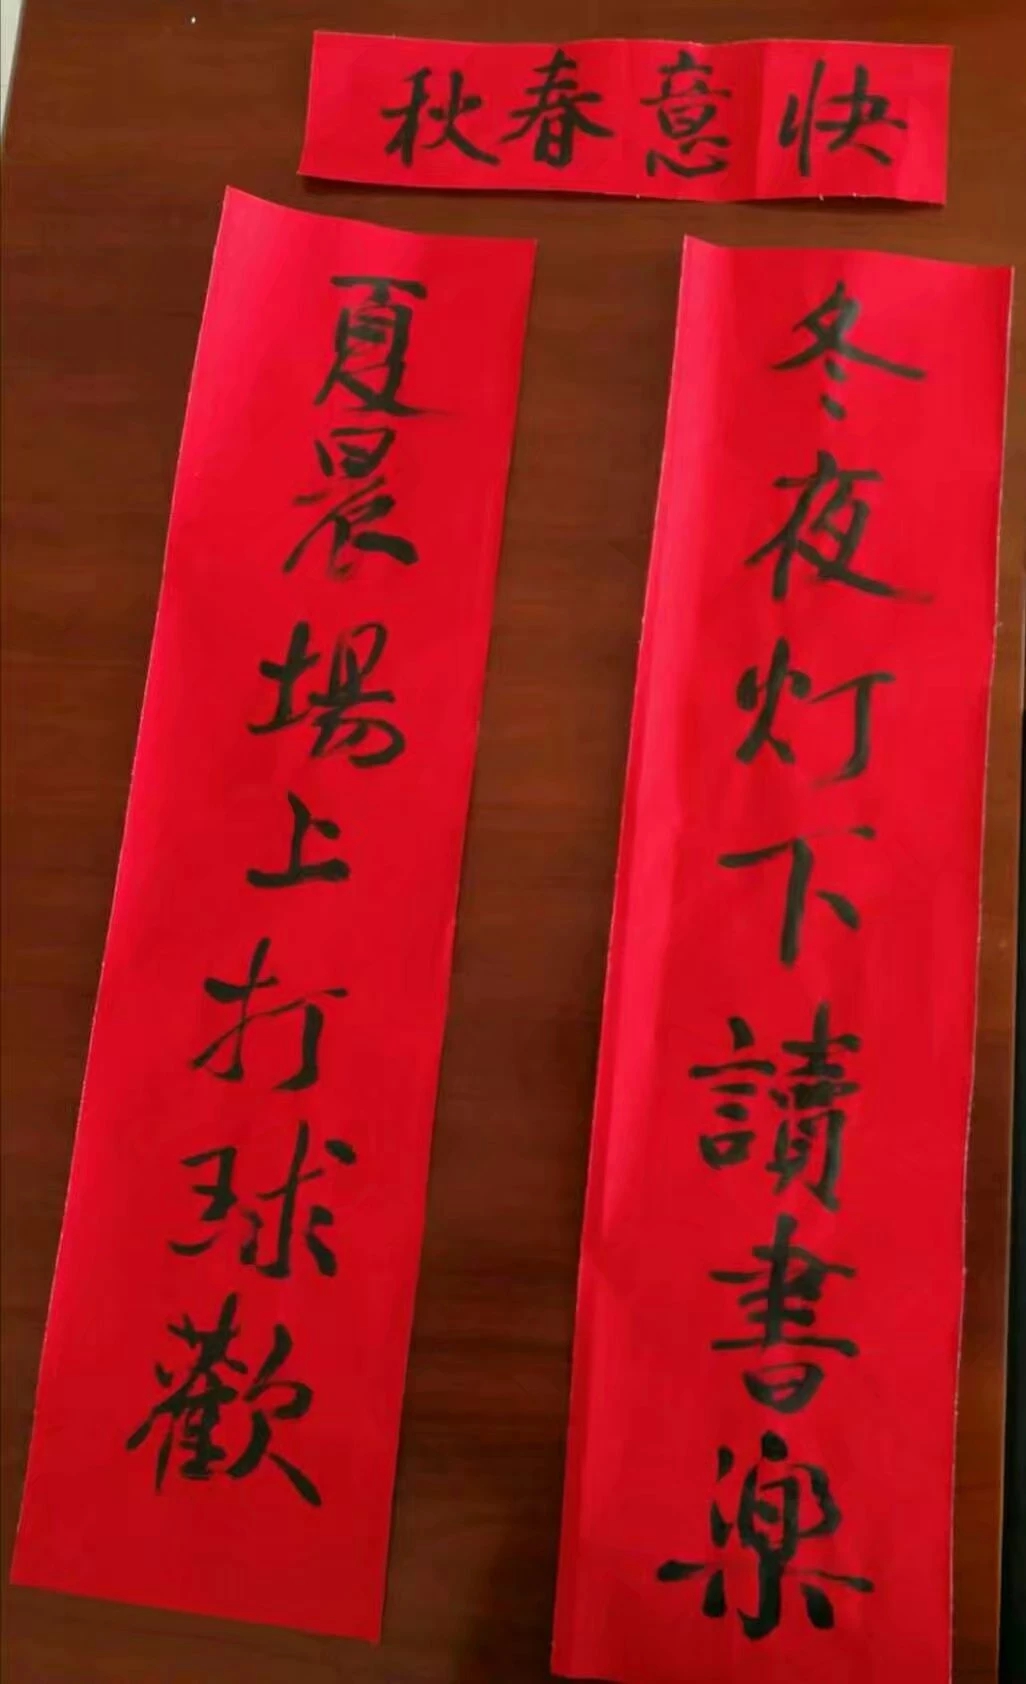 快意春秋
冬夜灯下讀書樂
夏晨場上打球歡